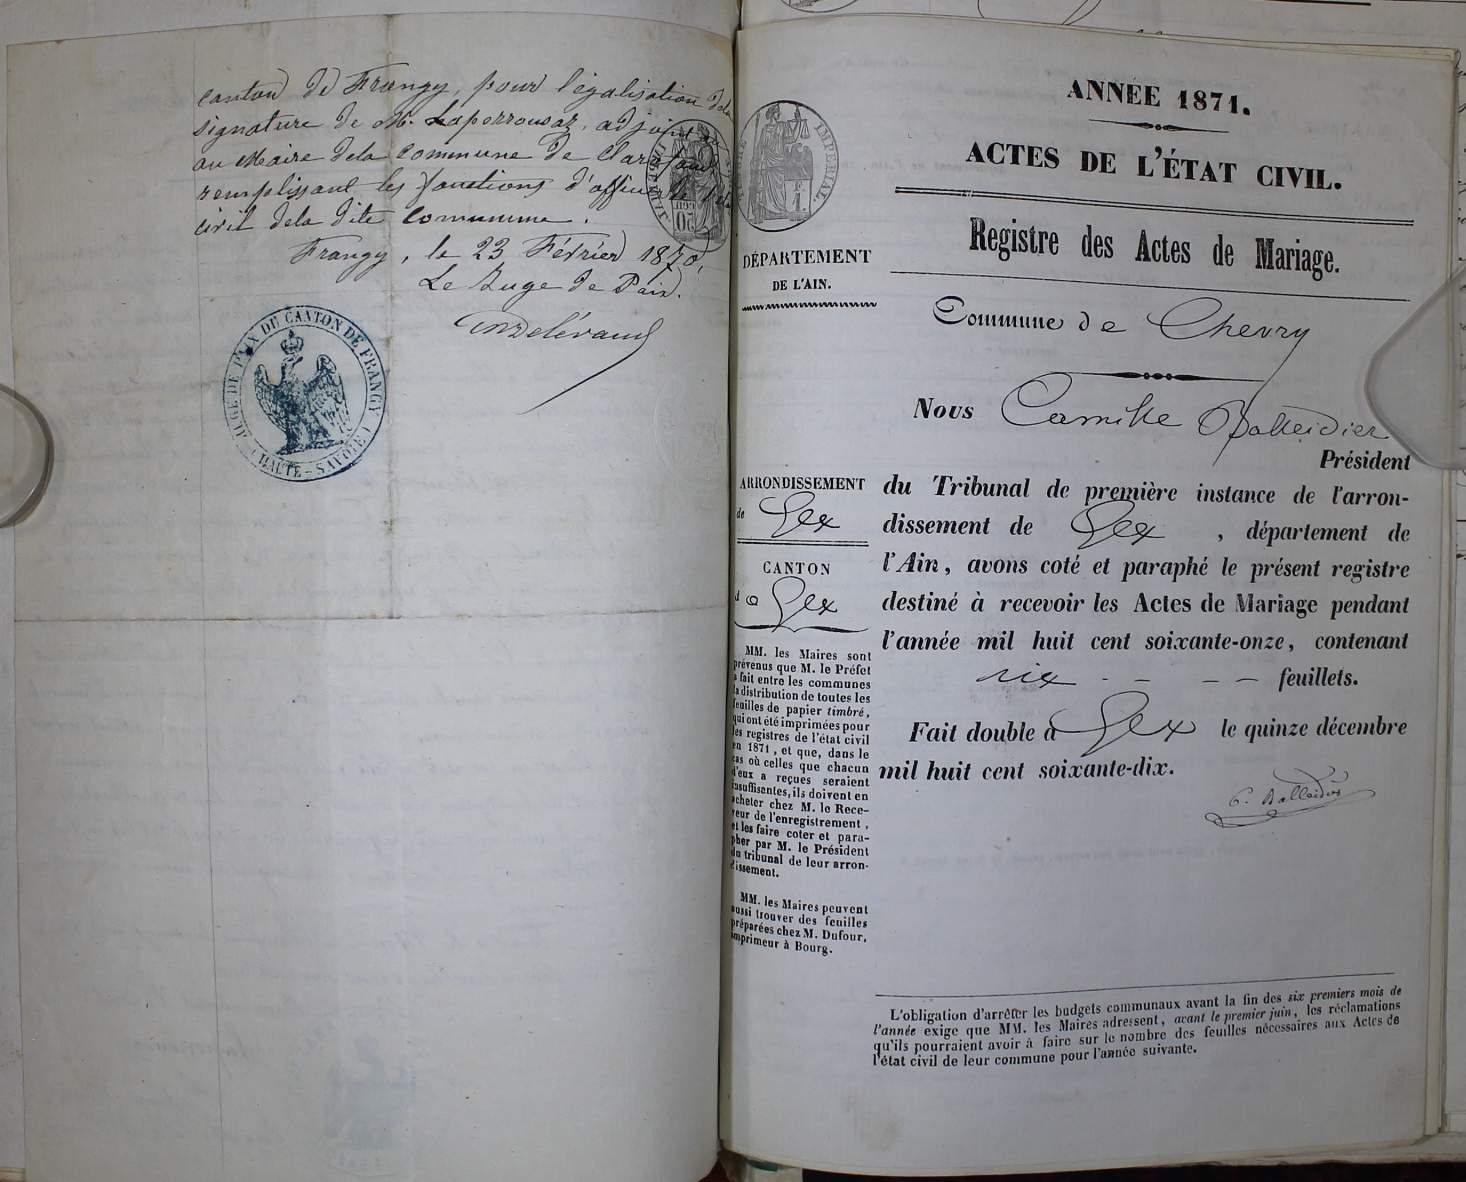 canton de Frangy, pour légalisation dela
signature de M. Laperrousaz, adjoint
au Maire dela commune de Clarafond
remplissant les fonctions d'officier de l'état
civil dela dite commune.
Frangy, le 23 Février 1870,
Le Juge de Paix.
JUGE DE PAIX DU CANTON DE FRANGY
(HAUTE-SAVOIE)
50
IMPERIAL.
F.
1.
ANNÉE 1871.
ACTES DE L'ÉTAT CIVIL.
Registre des Actes de Mariage.
Commune de Chevry
DÉPARTEMENT
DE L'AIN.
ARRONDISSEMENT
de Gex
CANTON
de Gex
MM. les Maires sont
prévenus que M. le Préfet
a fait entre les communes
la distribution de toutes les
feuilles de papier timbré,
qui ont été imprimées pour
les registres de l'état civil
en 1871, et que, dans le
cas où celles que chacun
d'eux a reçues seraient
insuffisantes, ils doivent en
acheter chez M. le Rece-
veur de l'enregistrement,
et les faire coter et para-
pher par M. le Président
du tribunal de leur arron-
dissement.
MM. les Maires peuvent
aussi trouver des feuilles
préparées chez M. Dufour,
imprimeur à Bourg.
Nous Camille Balleidier
Président
du Tribunal de première instance de l'arron-
dissement de Gex, département de
l'Ain, avons coté et paraphé le présent registre
destiné à recevoir les Actes de Mariage pendant
l'année mil huit cent soixante-onze, contenant
six - - - - feuillets.
Fait double à Gex le quinze décembre
mil huit cent soixante-dix.
C. Balleidier
L'obligation d'arrêter les budgets communaux avant la fin des six premiers mois de
l'année exige que MM. les Maires adressent, avant le premier juin, les réclamations
qu'ils pourraient avoir à faire sur le nombre des feuilles nécessaires aux Actes de
l'état civil de leur commune pour l'année suivante.